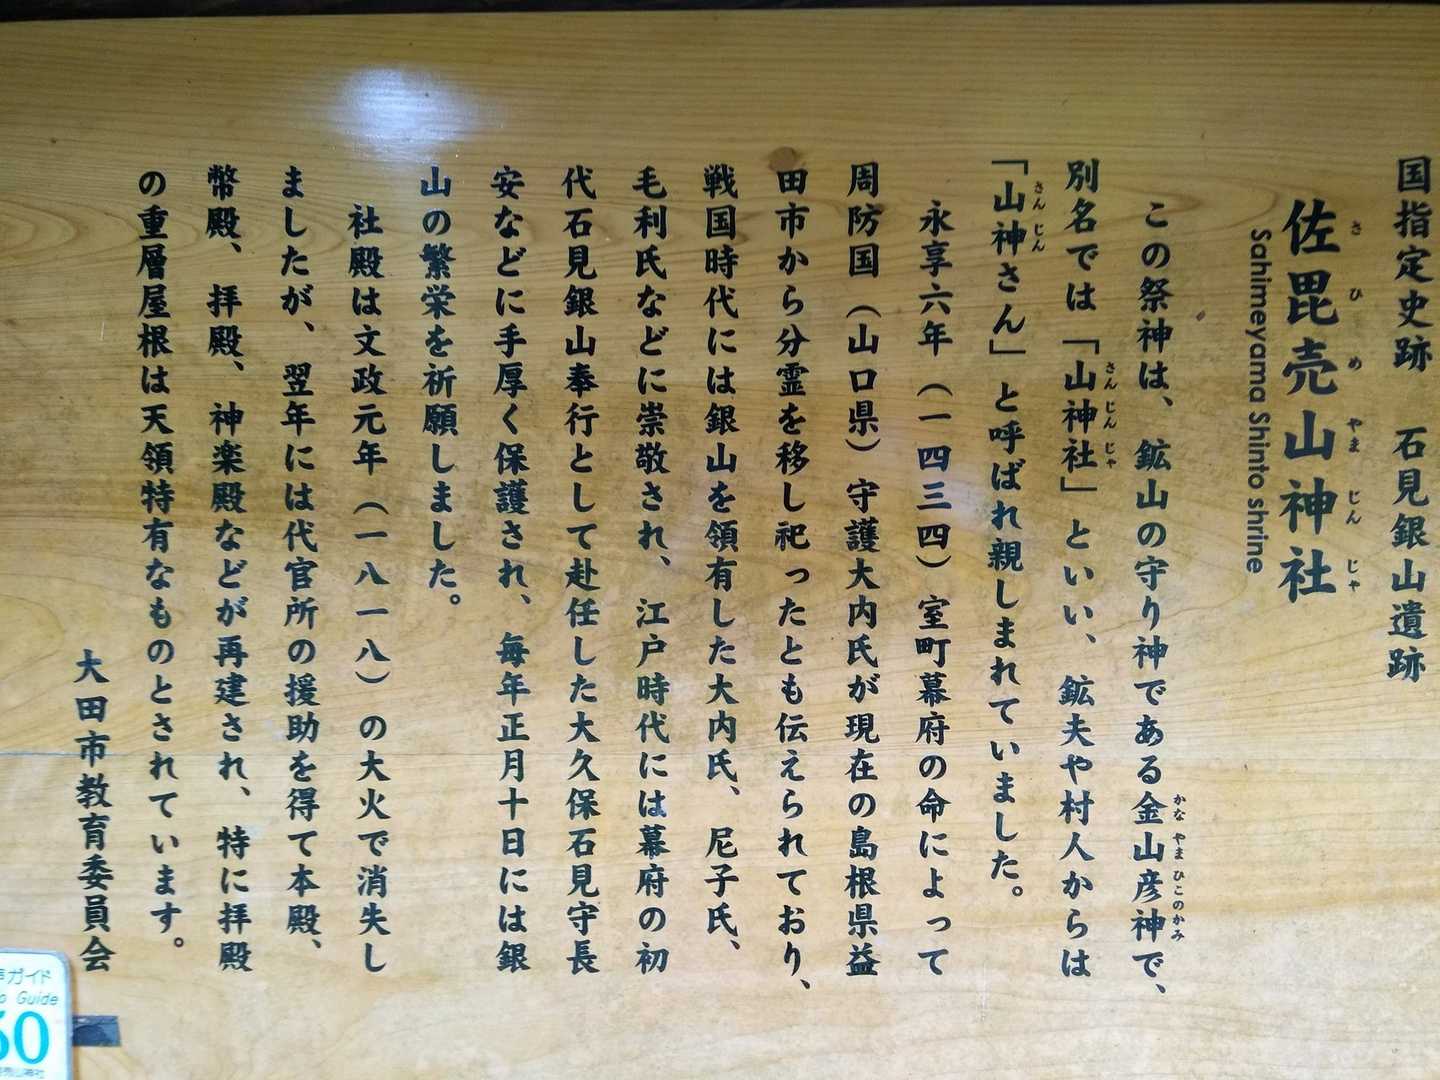 国指定史跡 石見銀山遺跡
佐毘売山神社
さ ひ め やま じん じゃ
Sahimeyama Shinto shrine
この祭神は、鉱山の守り神である金山彦神で、
かなやまひこのかみ
別名では「山神社」といい、鉱夫や村人からは
さんじんじゃ
「山神さん」と呼ばれ親しまれていました。
さんじん
永享六年(一四三四)室町幕府の命によって
周防国(山口県)守護大内氏が現在の島根県益
田市から分霊を移し祀ったとも伝えられており、
戦国時代には銀山を領有した大内氏、尼子氏、
毛利氏などに崇敬され、江戸時代には幕府の初
代石見銀山奉行として赴任した大久保石見守長
安などに手厚く保護され、毎年正月十日には銀
山の繁栄を祈願しました。
社殿は文政元年(一八一八)の大火で消失し
ましたが、翌年には代官所の援助を得て本殿、
幣殿、拝殿、神楽殿などが再建され、特に拝殿
の重層屋根は天領特有なものとされています。
大田市教育委員会
声ガイド
o Guide
60
売山神社